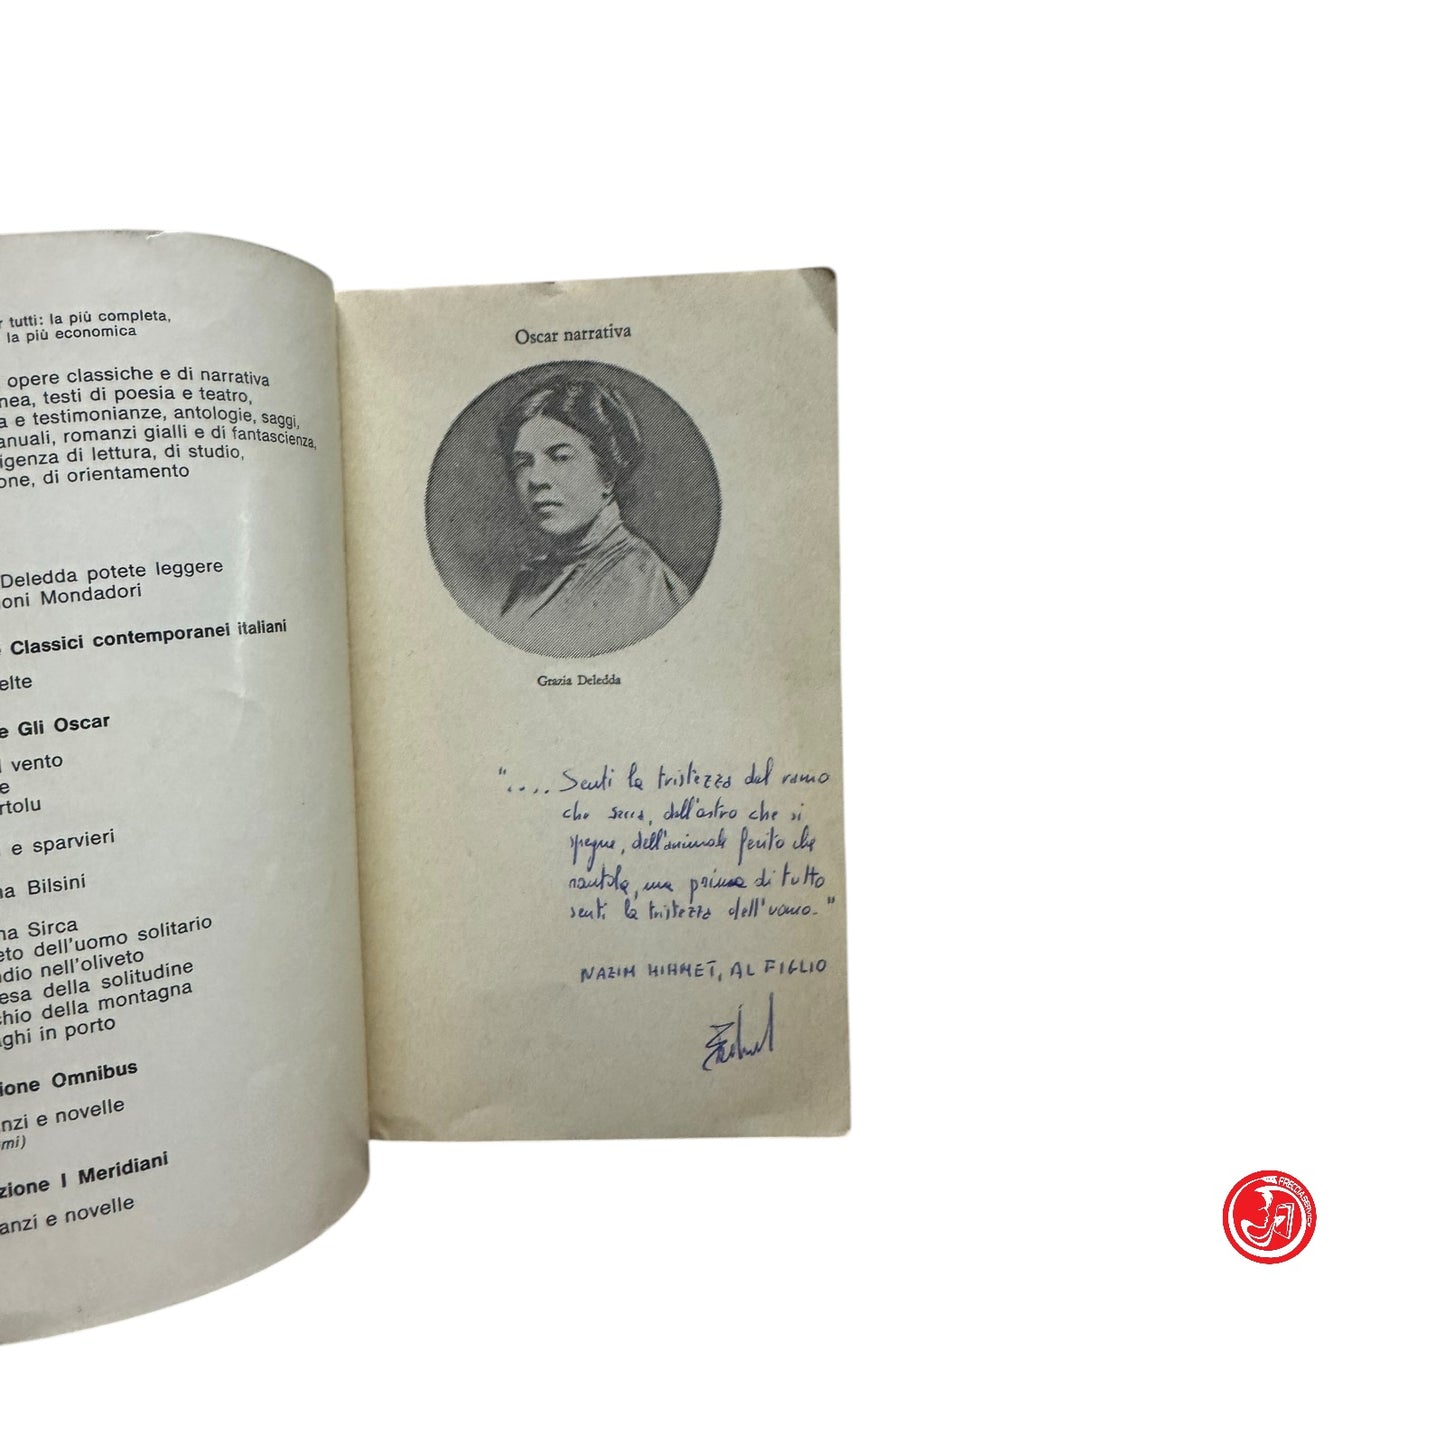 tutti: la più completa,
la più economica
opere classiche e di narrativa
nea, testi di poesia e teatro,
a e testimonianze, antologie, saggi,
anuali, romanzi gialli e di fantascienza,
igenza di lettura, di studio,
one, di orientamento
Deledda potete leggere
oni Mondadori
Classici contemporanei italiani
elte
e Gli Oscar
vento
e
rtolu
e sparvieri
na Bilsini
na Sirca
eto dell'uomo solitario
dio nell'oliveto
esa della solitudine
chio della montagna
ghi in porto
ione Omnibus
nzi e novelle
mi)
zione I Meridiani
anzi e novelle
Oscar narrativa
Grazia Deledda
".... Senti la tristezza del ramo
che secca, dell'astro che si
spegne, dell'animale ferito che
rantola, ma prima di tutto
senti la tristezza dell'uomo."
NAZIM HIKMET, AL FIGLIO
FRECCIASERVICE